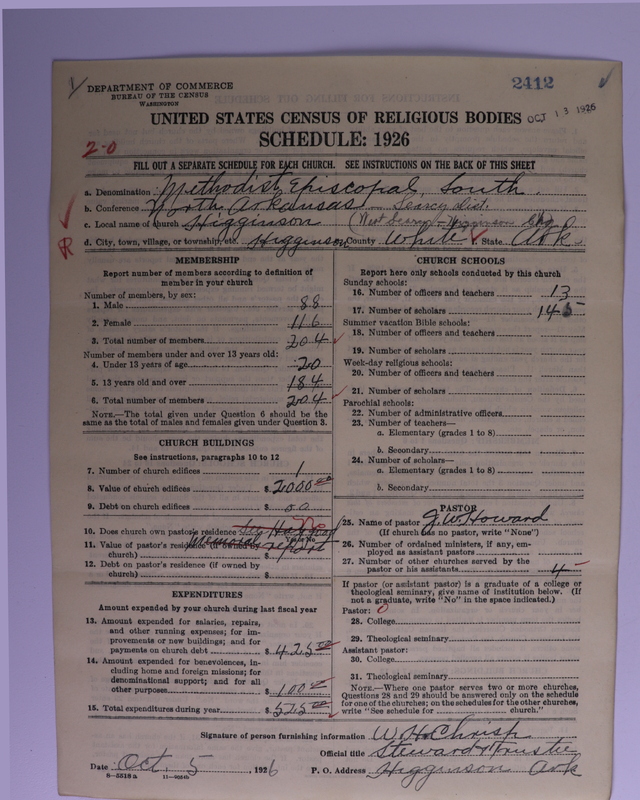 DEPARTMENT OF COMMERCE
BUREAU OF THE CENSUS
WASHINGTON
2412
OCT 13 1926
UNITED STATES CENSUS OF RELIGIOUS BODIES
SCHEDULE: 1926
2-0
FILL OUT A SEPARATE SCHEDULE FOR EACH CHURCH. SEE INSTRUCTIONS ON THE BACK OF THIS SHEET
a. Denomination Methodist Episcopal, South.
b. Conference North Arkansas - Searcy Dist.
c. Local name of church Higginson (West Searcy - Higginson
R
d. City, town, village, or township, etc. Higginson County White State Ark.
MEMBERSHIP
Report number of members according to definition of
member in your church
Number of members, by sex:
1. Male 88
2. Female 116
3. Total number of members 204
Number of members under and over 13 years old:
4. Under 13 years of age 20
5. 13 years old and over 184
6. Total number of members 204
NOTE.—The total given under Question 6 should be the
same as the total of males and females given under Question 3.
CHURCH BUILDINGS
See instructions, paragraphs 10 to 12
7. Number of church edifices 1
8. Value of church edifices $2000.00
9. Debt on church edifices $ 00
10. Does church own pastor's residence No
11. Value of pastor's residence (if owned by
church) $
12. Debt on pastor's residence (if owned by
church) $
EXPENDITURES
Amount expended by your church during last fiscal year
13. Amount expended for salaries, repairs,
and other running expenses; for im-
provements or new buildings; and for
payments on church debt $ 425.00
14. Amount expended for benevolences, in-
cluding home and foreign missions; for
denominational support; and for all
other purposes $ 100.00
15. Total expenditures during year $ 525.00
CHURCH SCHOOLS
Report here only schools conducted by this church
Sunday schools:
16. Number of officers and teachers 13
17. Number of scholars 145
Summer vacation Bible schools:
18. Number of officers and teachers
19. Number of scholars
Week-day religious schools:
20. Number of officers and teachers
21. Number of scholars
Parochial schools:
22. Number of administrative officers
23. Number of teachers—
a. Elementary (grades 1 to 8)
b. Secondary
24. Number of scholars—
a. Elementary (grades 1 to 8)
b. Secondary
PASTOR
25. Name of pastor J. W. Howard
(If church has no pastor, write "None")
26. Number of ordained ministers, if any, em-
ployed as assistant pastors
27. Number of other churches served by the
pastor or his assistants 4
If pastor (or assistant pastor) is a graduate of a college or
theological seminary, give name of institution below. (If
not a graduate, write "No" in the space indicated.)
Pastor: 0
28. College
29. Theological seminary
Assistant pastor:
30. College
31. Theological seminary
NOTE.—Where one pastor serves two or more churches,
Questions 28 and 29 should be answered only on the schedule
for one of the churches; on the schedules for the other churches,
write "See schedule for church."
Signature of person furnishing information W. H. Chrisp
Official title Steward & Trustee
Date Oct. 5, 1926 P. O. Address Higginson Ark
8-5318 a 11-9054b